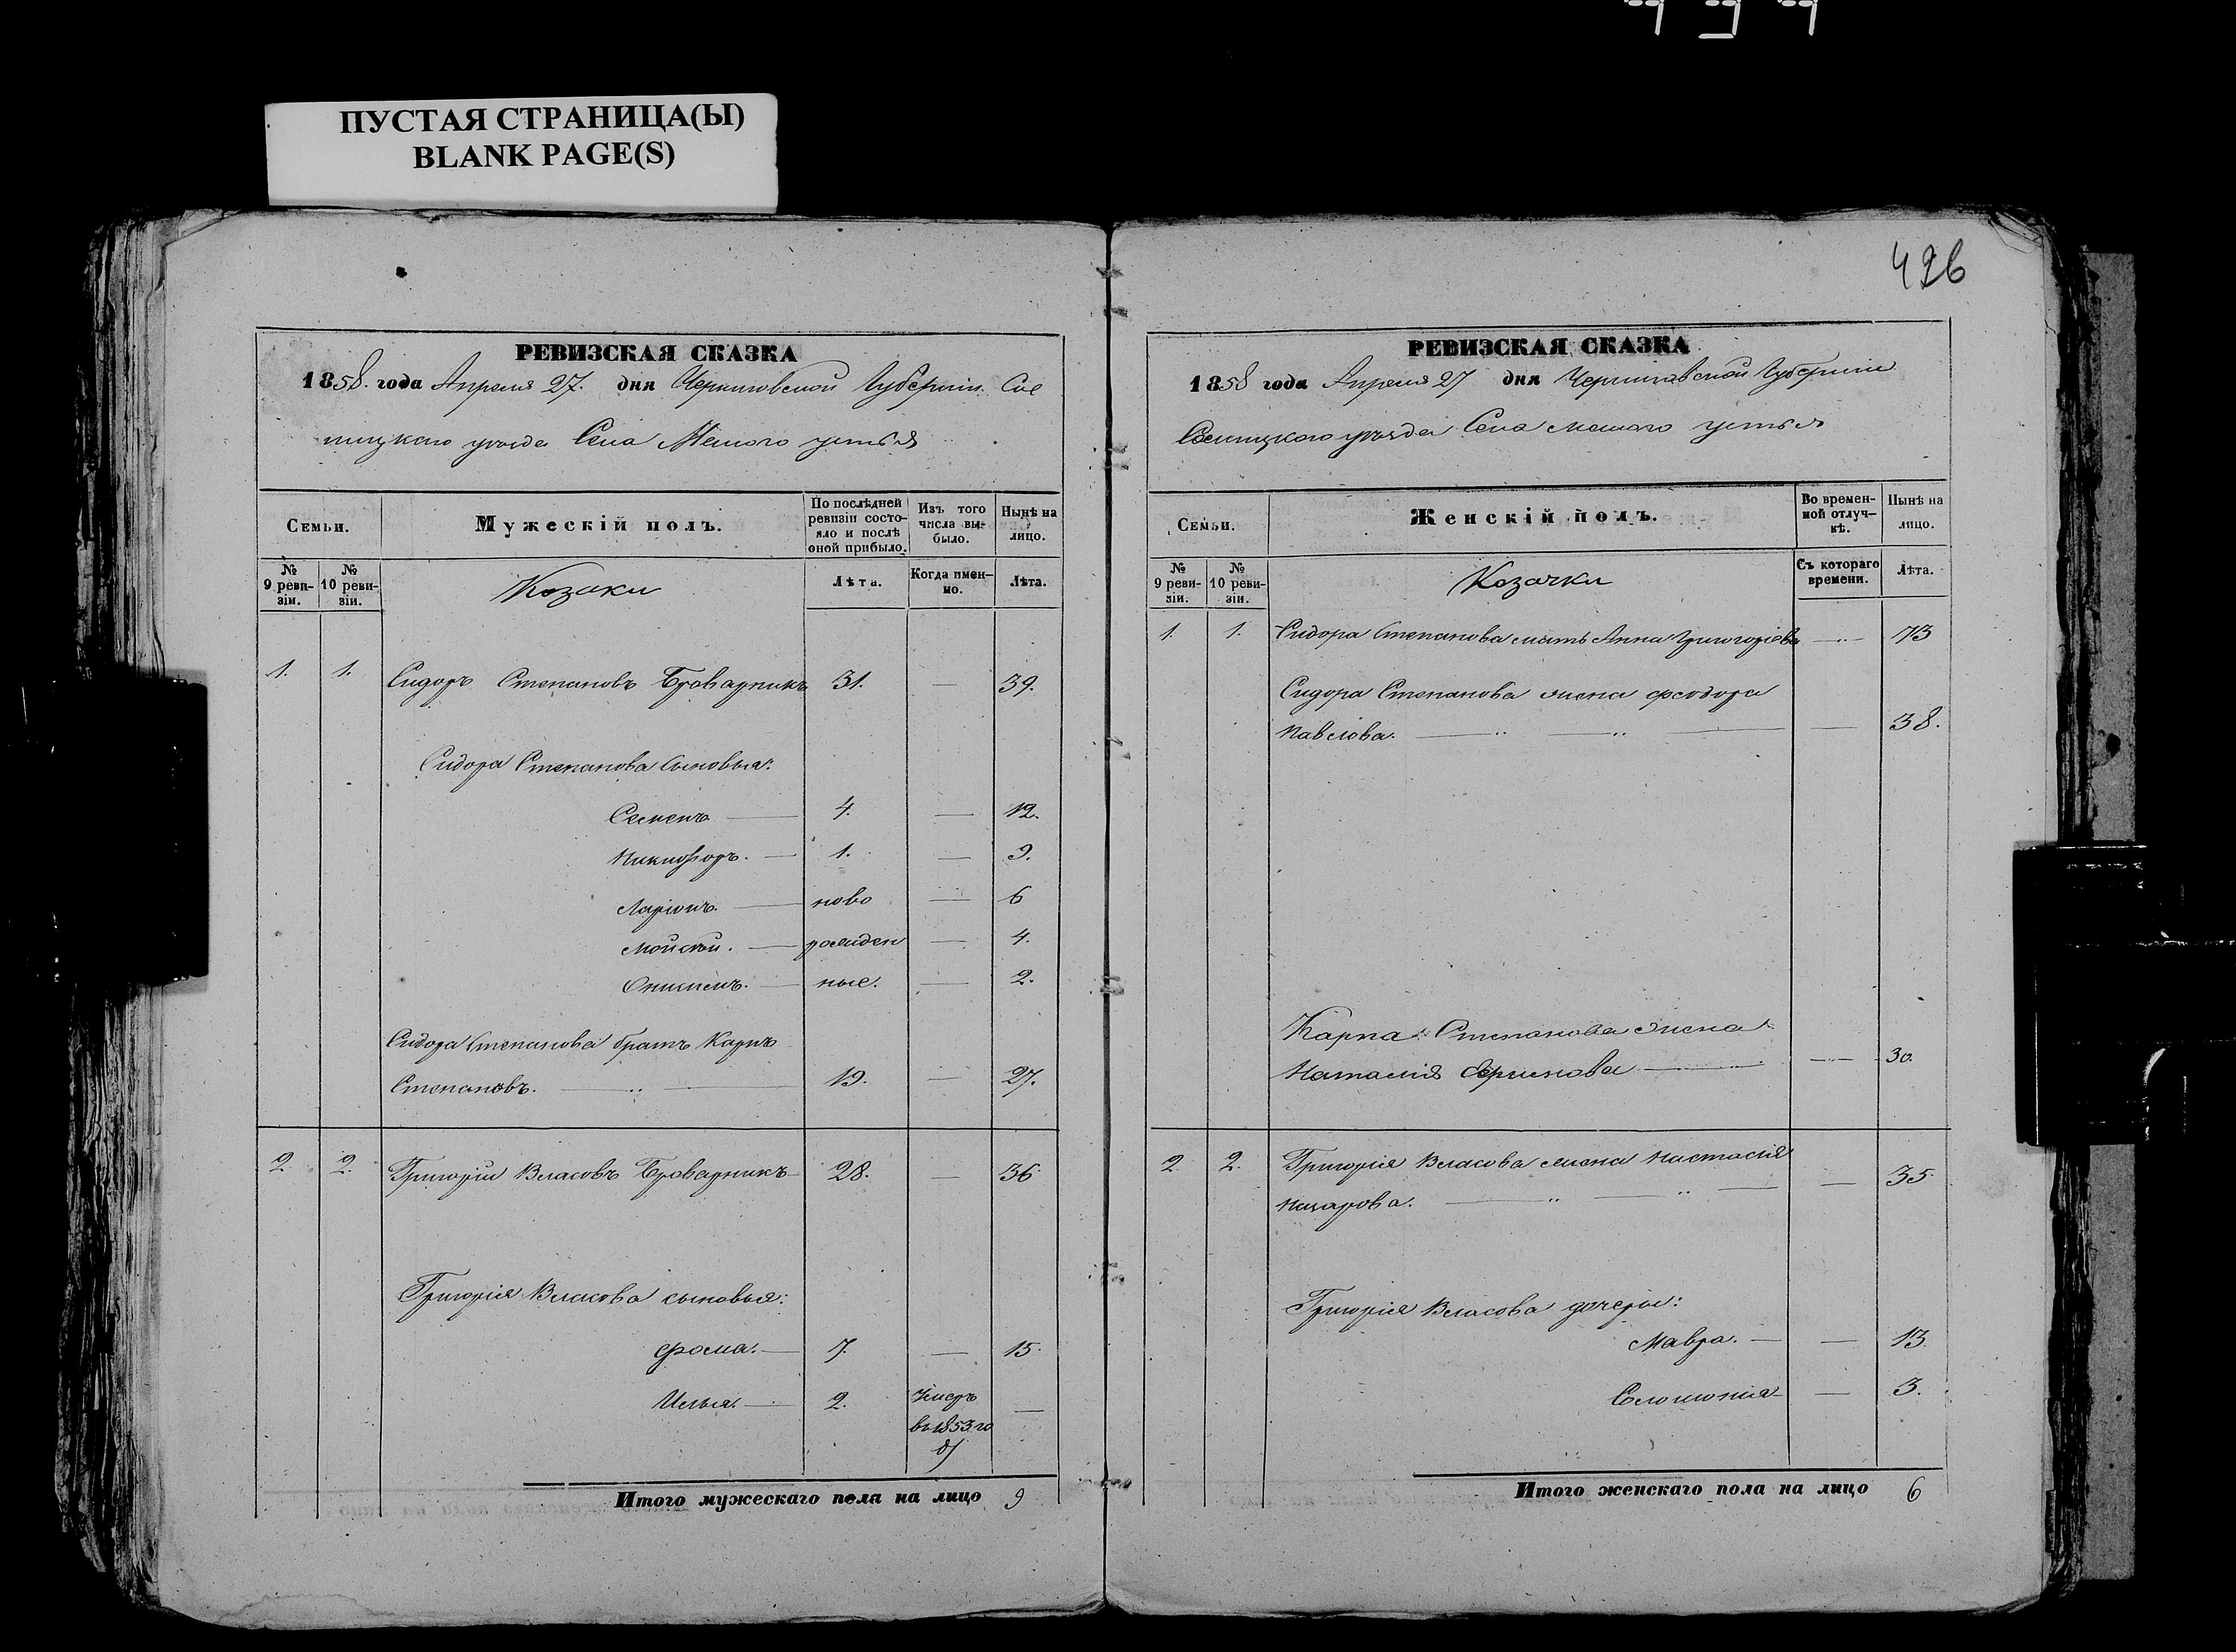 ПУСТАЯ СТРАНИЦА(Ы)
BLANK PAGE(S)
РЕВИЗСКАЯ СКАЗКА
1858. года Апреля 27. дня Черниговской Губерніи Сос
ницкаго уѣзда Села Малого устья
Семьи.
Мужескій полъ.
По послѣдней ревизіи состояло и послѣ оной прибыло.
Изъ того числа выбыло.
Нынѣ на лицо.
№ 9 ревизіи.
№ 10 ревизіи.
Козаки
Лѣта.
Когда именно.
Лѣта.
1. 1. Сидоръ Степановъ Броварникъ 31. — 39.
Сидора Степанова сыновья:
Семенъ — 4. — 12.
Никифоръ. — 1. — 9.
Ларіонъ. — ново — 6
Мойсей. — рожден — 4.
— ные. — 2.
Сидора Степанова братъ Карпъ
Степановъ. — 19. — 27.
2. 2. Григорій Власовъ Броварникъ 28. — 36
Григорія Власова сыновья:
Фома. — 7. — 15.
Илья. — 2. Умеръ —
въ 1853 го
ду
Итого мужескаго пола на лицо 9
426
РЕВИЗСКАЯ СКАЗКА
1858 года Апреля 27 дня Черниговской Губерніи
Сосницкого уѣзда Села малого устья
Семьи.
Женскій полъ.
Во временной отлучкѣ.
Нынѣ на лицо.
№ 9 ревизіи.
№ 10 ревизіи.
Козачки
Съ котораго времени.
Лѣта.
1. 1. Сидора Степанова мать Анна Григорієва — 73
Сидора Степанова жена Феодора
Павлова. — 38.
Карпа Степанова жена
Наталія — 30.
2. 2. Григорія Власова жена Настасія
Назарова. — 35.
Григорія Власова дочери:
Мавра. — 13.
Соломонія — 3.
Итого женскаго пола на лицо 6